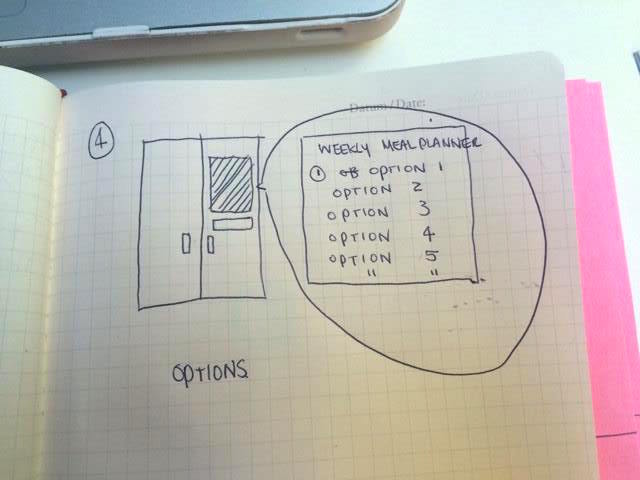 Datum / Date:
4
WEEKLY MEAL PLANNER
1 OPTION 1
OPTION 2
OPTION 3
OPTION 4
OPTION 5
" "
OPTIONS